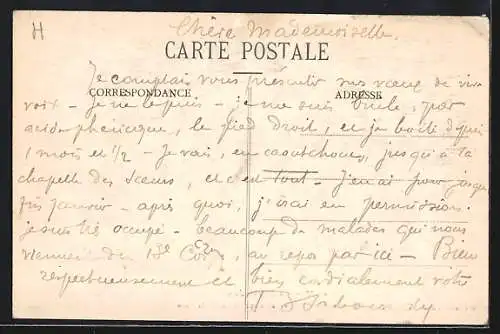 H
Chère Mademoiselle.
CARTE POSTALE
CORRESPONDANCE
ADRESSE
Je comptais vous présenter mes vœux de vive
voix – je ne le puis – je me suis brûlé, par
acide phénique, le pied droit, et je boite depuis
1 mois et 1/2 – Je vais, en caoutchouc, jusqu'à la
chapelle des Sœurs, et c'est tout – J'en ai pour jusque
fin janvier – après quoi, j'irai en permission.
je suis très occupé – beaucoup de malades qui nous
viennent du 1er Corps, au repos par ici – Bien
respectueusement et bien cordialement votre